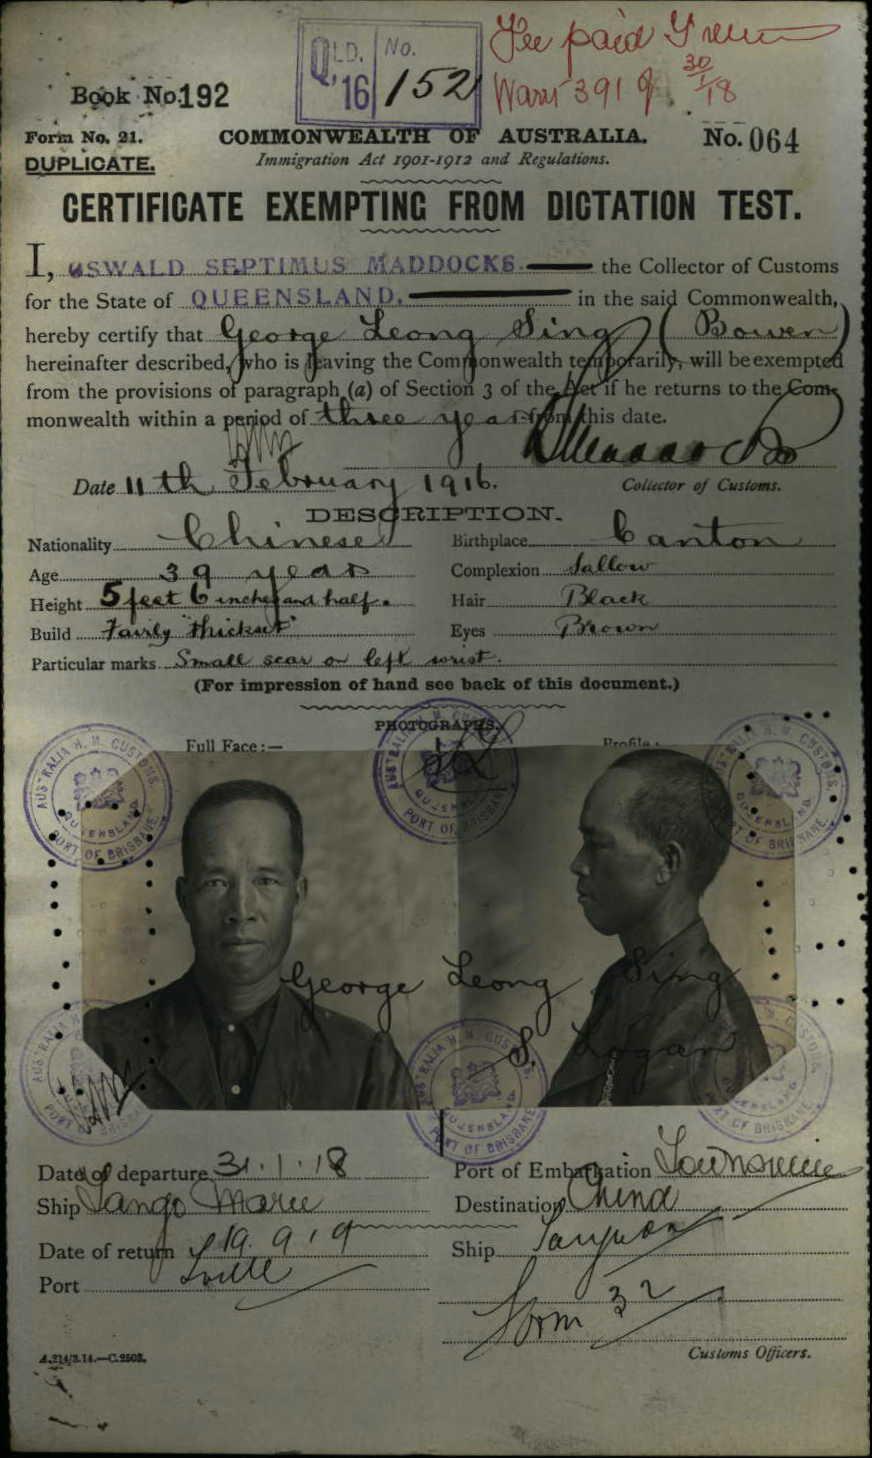 QLD. No.
'16 152
Fee paid
30/1/18
Book No. 192
Form No. 21.
COMMONWEALTH OF AUSTRALIA.
No. 064
DUPLICATE.
Immigration Act 1901-1912 and Regulations.
CERTIFICATE EXEMPTING FROM DICTATION TEST.
I, OSWALD SEPTIMUS MADDOCKS the Collector of Customs
for the State of QUEENSLAND, in the said Commonwealth,
hereby certify that George Leong Sing (Bowen)
hereinafter described, who is leaving the Commonwealth temporarily, will be exempted
from the provisions of paragraph (a) of Section 3 of the Act if he returns to the Com-
monwealth within a period of three years from this date.
Date 11th February 1916. Collector of Customs.
DESCRIPTION.
Nationality Chinese Birthplace Canton
Age 39 years Complexion Sallow
Height 5 feet 6 inches and half. Hair Black
Build Fairly "thickset" Eyes Brown
Particular marks Small scar on left wrist.
(For impression of hand see back of this document.)
PHOTOGRAPHS.
Full Face:— Profile:
AUSTRALIA H. M. CUSTOMS. QUEENSLAND PORT OF BRISBANE
AUSTRALIA H. M. CUSTOMS. QUEENSLAND PORT OF BRISBANE
AUSTRALIA H. M. CUSTOMS. QUEENSLAND PORT OF BRISBANE
George Leong Sing
S. Logan
AUSTRALIA H. M. CUSTOMS. QUEENSLAND PORT OF BRISBANE
AUSTRALIA H. M. CUSTOMS. QUEENSLAND PORT OF BRISBANE
AUSTRALIA H. M. CUSTOMS. QUEENSLAND PORT OF BRISBANE
Date of departure 31.1.18 Port of Embarkation Townsville
Ship Tango Maru Destination China
Date of return 19.9.19 Ship Taiyuan
Port Tville
Form 32
Customs Officers.
A.214/3.14.—C.2503.